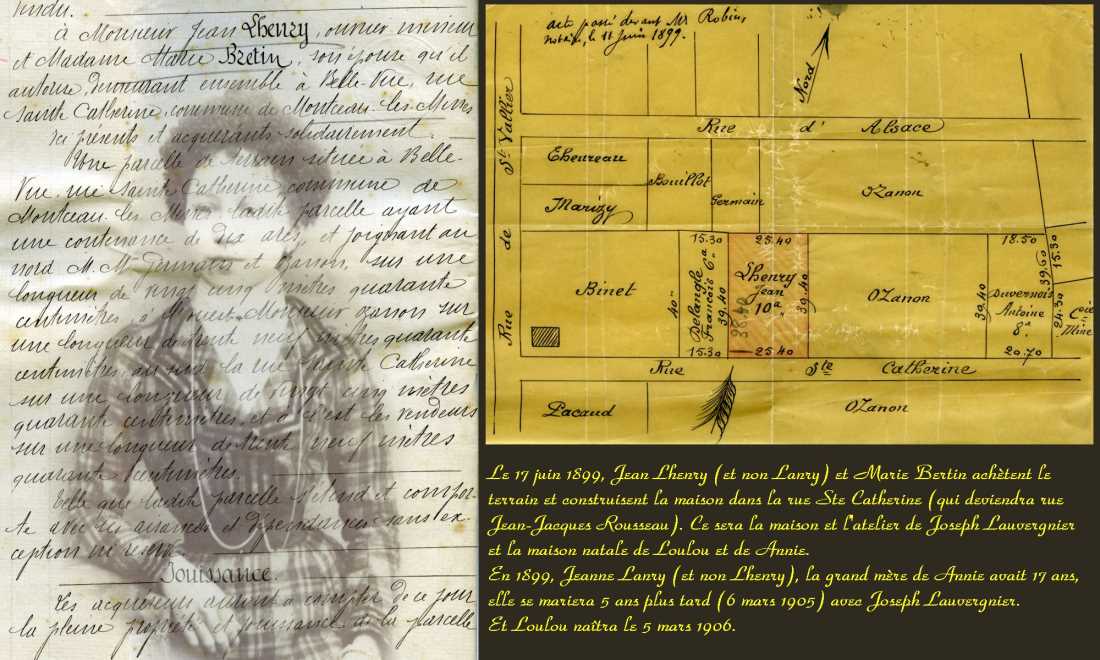 vendu.
à Monsieur Jean Lhenry, ouvrier mineur
et Madame Marie Bretin, son épouse qu'il
autorise, demeurant ensemble à Belle-Vue, rue
Sainte Catherine, commune de Montceau-les-Mines
ici présents et acquérants solidairement.
Une parcelle de terrain située à Belle-
Vue, rue Sainte Catherine, commune de
Montceau-les-Mines ladite parcelle ayant
une contenance de dix ares, et joignant au
nord M. Mr Germain et Ozanon, sur une
longueur de vingt cinq mètres quarante
centimètres à l'ouest Monsieur Ozanon sur
une longueur de trente neuf mètres quarante
centimètres, au sud la rue Sainte Catherine
sur une longueur de vingt cinq mètres
quarante centimètres, et à l'est les vendeurs
sur une longueur de trente neuf mètres
quarante centimètres.
Telle que ladite parcelle s'étend et compor-
te avec ses aisances et dépendances sans ex-
ception ni réserve.
Jouissance.
Les acquéreurs auront à compter de ce jour
la pleine propriété et jouissance de la parcelle
acte passé devant Mr Robin,
notaire, le 11 juin 1899.
Nord
Rue de St Vallier
Rue d' Alsace
Eheureau
Marizy
Bouillot
Germain
Ozanon
Binet
40m
15.30
Delangle
François 6a
39.40
15.30
25.40
Lhenry
Jean
10a
38.40
39.40
25.40
Ozanon
39.40
18.50
Duvernois
Antoine
8a
20.70
39.60
15.30
24.30
Mine
Rue Ste Catherine
Pacaud
Ozanon
Le 17 juin 1899, Jean Lhenry (et non Lanry) et Marie Bertin achètent le
terrain et construisent la maison dans la rue Ste Catherine (qui deviendra rue
Jean-Jacques Rousseau). Ce sera la maison et l'atelier de Joseph Lauvergnier
et la maison natale de Loulou et de Annie.
En 1899, Jeanne Lanry (et non Lhenry), la grand mère de Annie avait 17 ans,
elle se mariera 5 ans plus tard (6 mars 1905) avec Joseph Lauvergnier.
Et Loulou naîtra le 5 mars 1906.